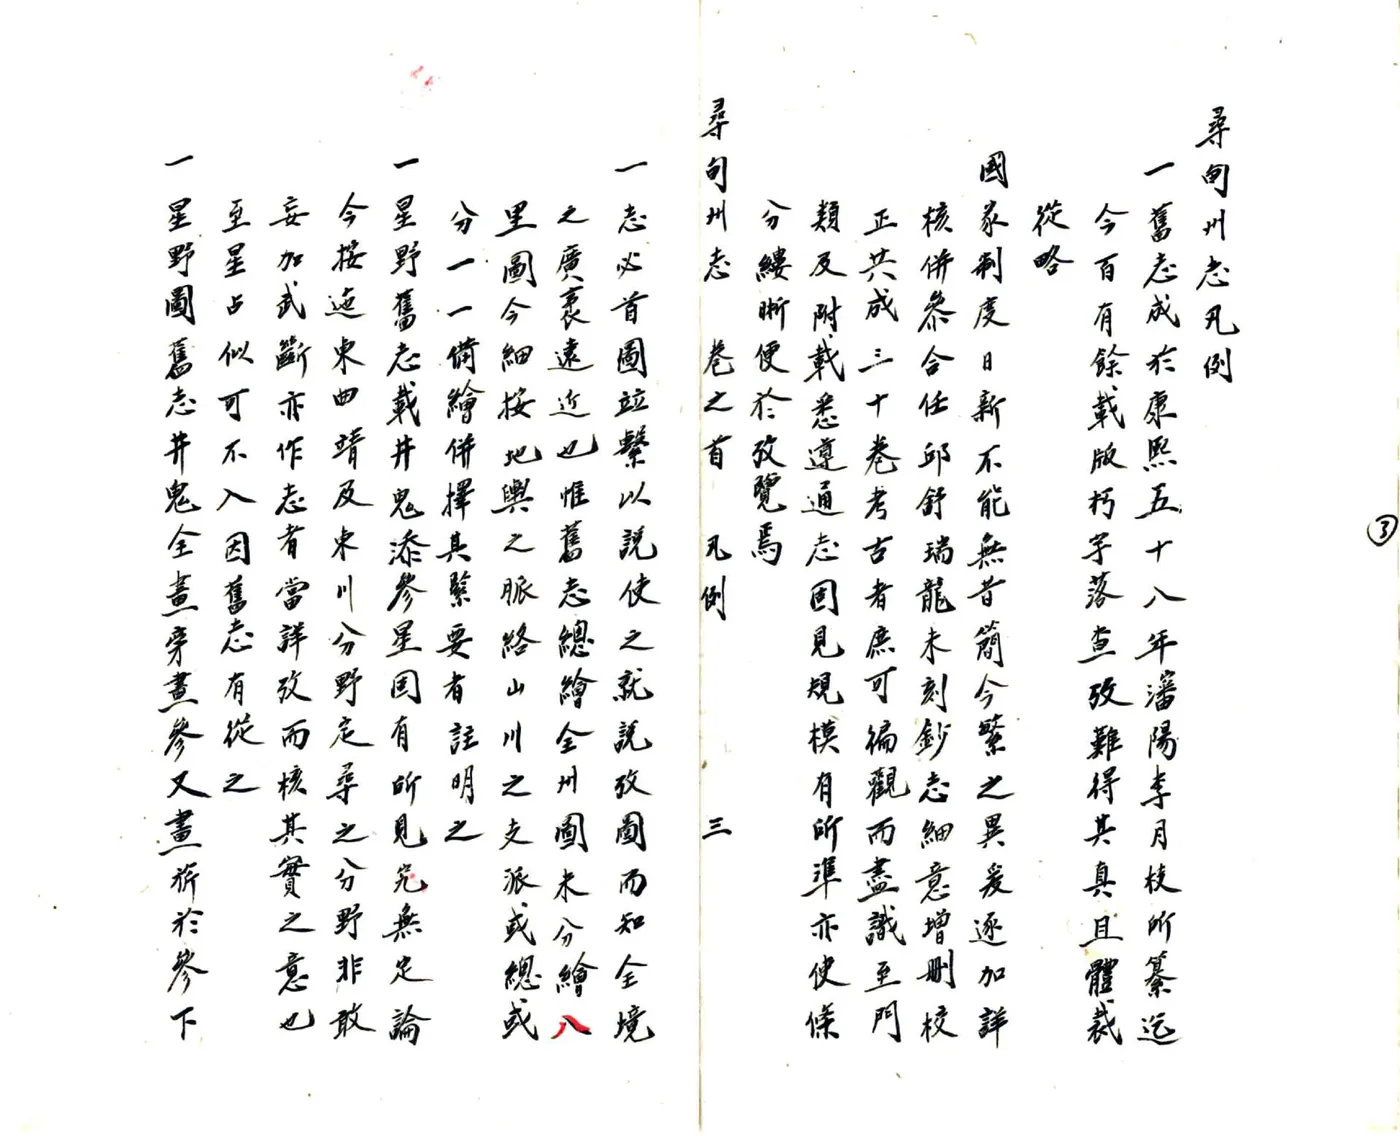 尋甸州志凡例
一舊志成於康熙五十八年瀋陽李月枝所纂迄
今百有餘載版朽字落查攷難得其真且體裁
從略
國家制度日新不能無昔簡今繁之異爰逐加詳
核併參合任邱舒瑞龍未刻鈔志細意增刪校
正共成三十卷考古者庶可徧觀而盡識至門
類及附載悉遵通志固見規模有所準亦使條
分縷晰便於攷覽焉
尋甸州志 卷之首 凡例 三
一志必首圖竝繫以說使之就說攷圖而知全境
之廣袤遠近也惟舊志總繪全州圖未分繪八
里圖今細按地輿之脈絡山川之支派或總或
分一一備繪併擇其緊要者註明之
一星野舊志載井鬼添參星固有所見究無定論
今按迤東曲靖及東川分野定尋之分野非敢
妄加武斷亦作志者當詳攷而核其實之意也
至星占似可不入因舊志有從之
一星野圖舊志井鬼全畫旁畫參又畫旂於參下
③